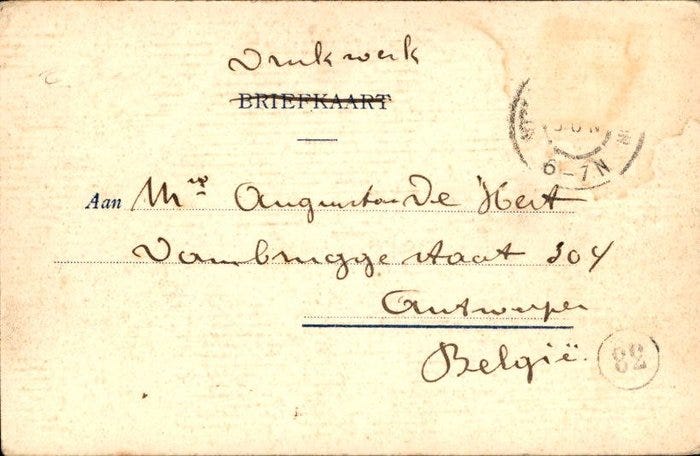 Drukwerk
BRIEFKAART
JUN
6-7N
Aan Mr Augustus De Hert
Dambruggestraat 304
Antwerpen
België.
82